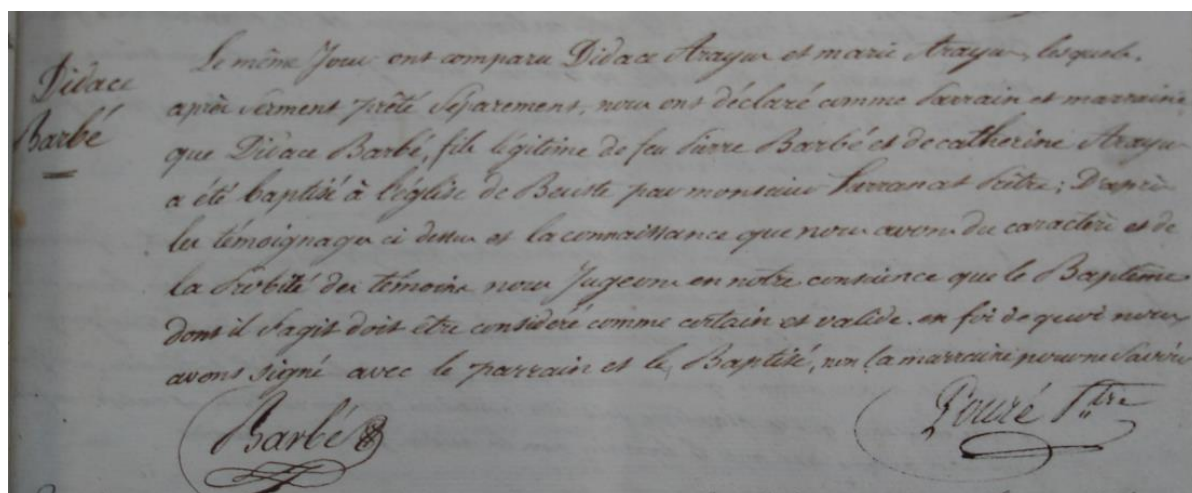 Didace
Barbé
Le même Jour ont comparu Didace Arayu et marie Arayu, lesquels,
après serment prêté séparement, nous ont déclaré comme parrain et marraine
que Didace Barbé, fils légitime de feu Pierre Barbé et de catherine Arayu
a été baptisé à l'église de Beuste par monsieur Larranat Prêtre; D'après
les témoignages ci dessus et la connaissance que nous avons du caractère et de
la Probité des témoins nous Jugeons en notre conscience que le Baptême
dont il s'agit doit être considéré comme certain et valide. en foi de quoi nous
avons signé avec le parrain et le Baptisé, non la marraine pour ne savoir
Barbé
Pouré Ptre